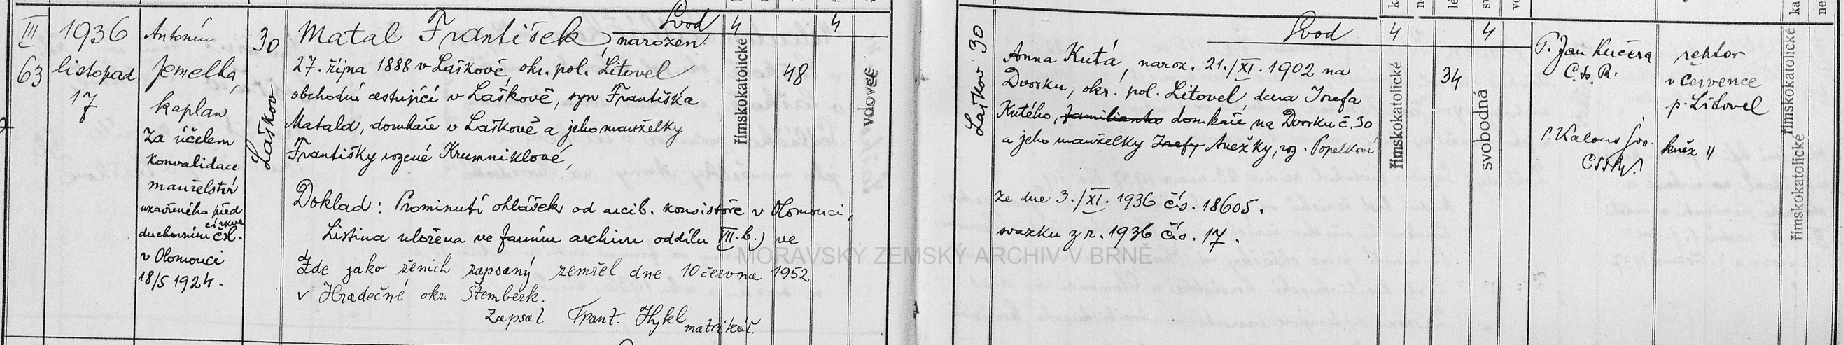 III
63
1936
listopad
17
Antonín
Jemelka,
kaplan
Za účelem
konvalidace
manželství
uzavřeného před
duchovním církve
čsl.
v Olomouci
18/5 1924.
30
Laškov
Matal František, narozen
27. října 1888 v Laškově, okr. pol. Litovel
obchodní cestující v Laškově, syn Františka
Matala, domkáře v Laškově a jeho manželky
Františky rozené Krumniklové,
Doklad: Prominutí ohlášek od arcib. konsistoře v Olomouci,
Listina uložena ve farním archivu oddílu VII. b.) ve
Zde jako ženich zapsaný zemřel dne 10 června 1952
v Hradečné okr. Štemberk.
Zapsal Frant. Hykl matrikář.
Svod 4 4
římskokatolické
48
vdovec
Laškov 30
Svod 4 4
Anna Kutá, naroz. 21./XI. 1902 na
Dvorku, okr. pol. Litovel, dcera Josefa
Kutého, familianta domkáře na Dvorku č. 30
a jeho manželky Josefy Anežky, roz. Popelkové
ze dne 3./XI. 1936 čís. 18605.
svazku z r. 1936 čís. 17.
římskokatolické
34
svobodná
P. Jan Kučera
C.ss.R.
rektor
v Července
p. Litovel
P. Kalous
CSSR
kněz
římskokatolické
římskokatolické
MORAVSKÝ ZEMSKÝ ARCHIV V BRNĚ